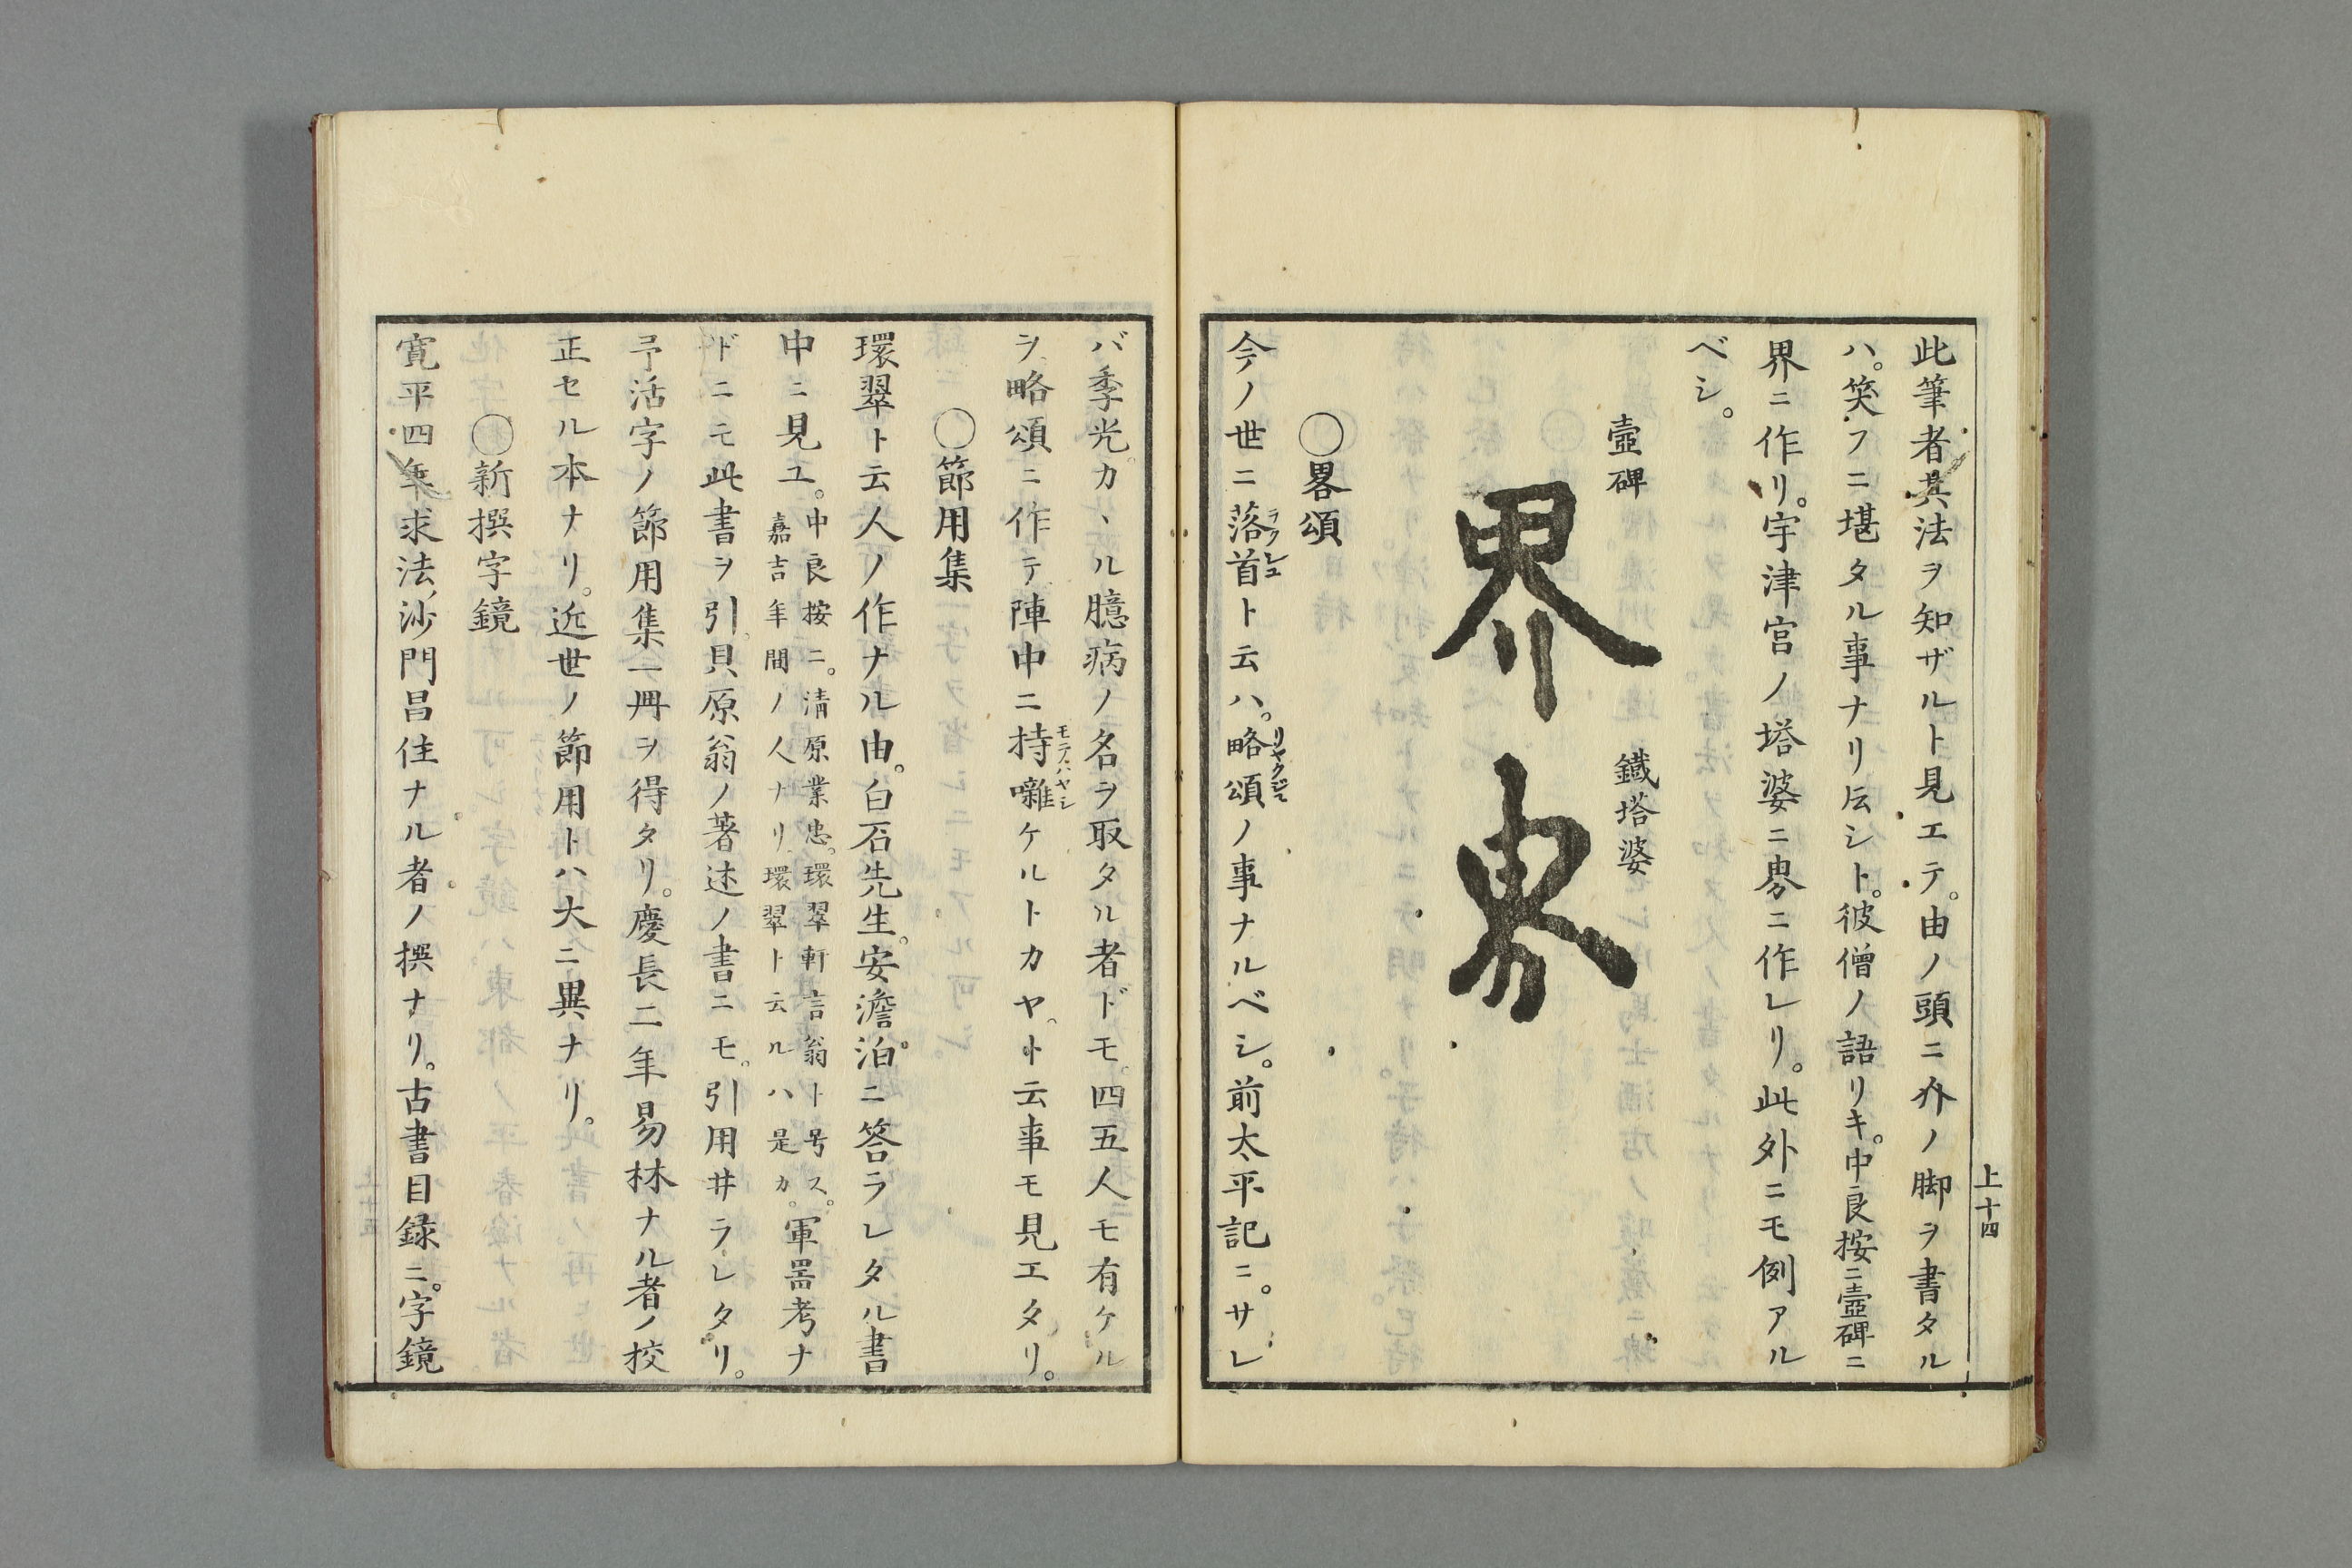 上十四
此筆者其法ヲ知ザルト見エテ。由ノ頭ニ介ノ脚ヲ書タル
ハ。笑フニ堪タル事ナリ𫝆シト。彼僧ノ語リキ。中良按ニ壺碑ニ
界ニ作リ。宇津宮ノ塔婆ニ畧ニ作レリ。此外ニモ例アル
ベシ。
壺碑
鐵塔婆
界
○畧頌
今ノ世ニ落首ト云ハ。略頌ノ事ナルベシ。前太平記ニ。サレ
ラクシユ
リヤクジユ
バ季光カヽル臆病ノ名ヲ取タル者ドモ。四五人モ有ケル
ヲ。略頌ニ作テ陣中ニ持囃ケルトカヤ。ト云事モ見エタリ。
モテハヤシ
○節用集
環翠ト云人ノ作ナル由。白石先生。安澹泊ニ答ラレタル書
中ニ見ユ。
中良按ニ。清原業忠。環翠軒言翁ト号ス。
嘉吉年間ノ人ナリ環翠ト云ルハ是カ。
軍噐考ナ
ドニモ此書ヲ引。貝原翁ノ著述ノ書ニモ。引用井ラレタリ。
予活字ノ節用集一冊ヲ得タリ。慶長二年易林ナル者ノ校
正セル本ナリ。近世ノ節用トハ大ニ異ナリ。
○新撰字鏡
寛平四年求法沙門昌住ナル者ノ撰ナリ。古書目録ニ。字鏡